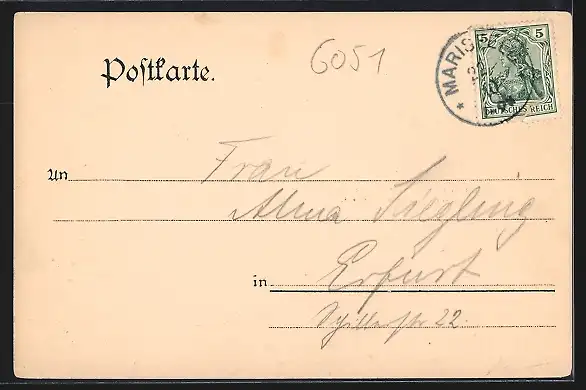 Postkarte.
6051
5 5
DEUTSCHES REICH
* MARIS
An Frau
Alma Siegling
in Erfurt
Schillerstr 22.